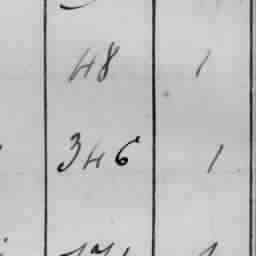 48 1
346 1